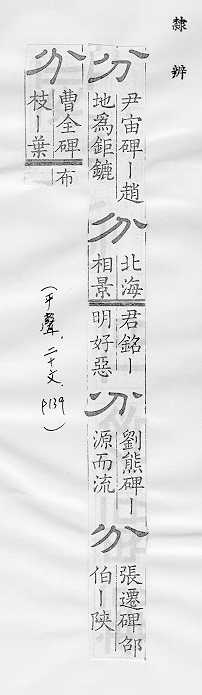 隸辨
分
尹宙碑ー趙
地爲鉅鏕
分
北海
相景
君銘ー
明好惡
分
劉熊碑ー
源而流
分
張遷碑郃
伯ー陝
分
曹全碑布
枝ー葉
(平聲,二十文,p139)